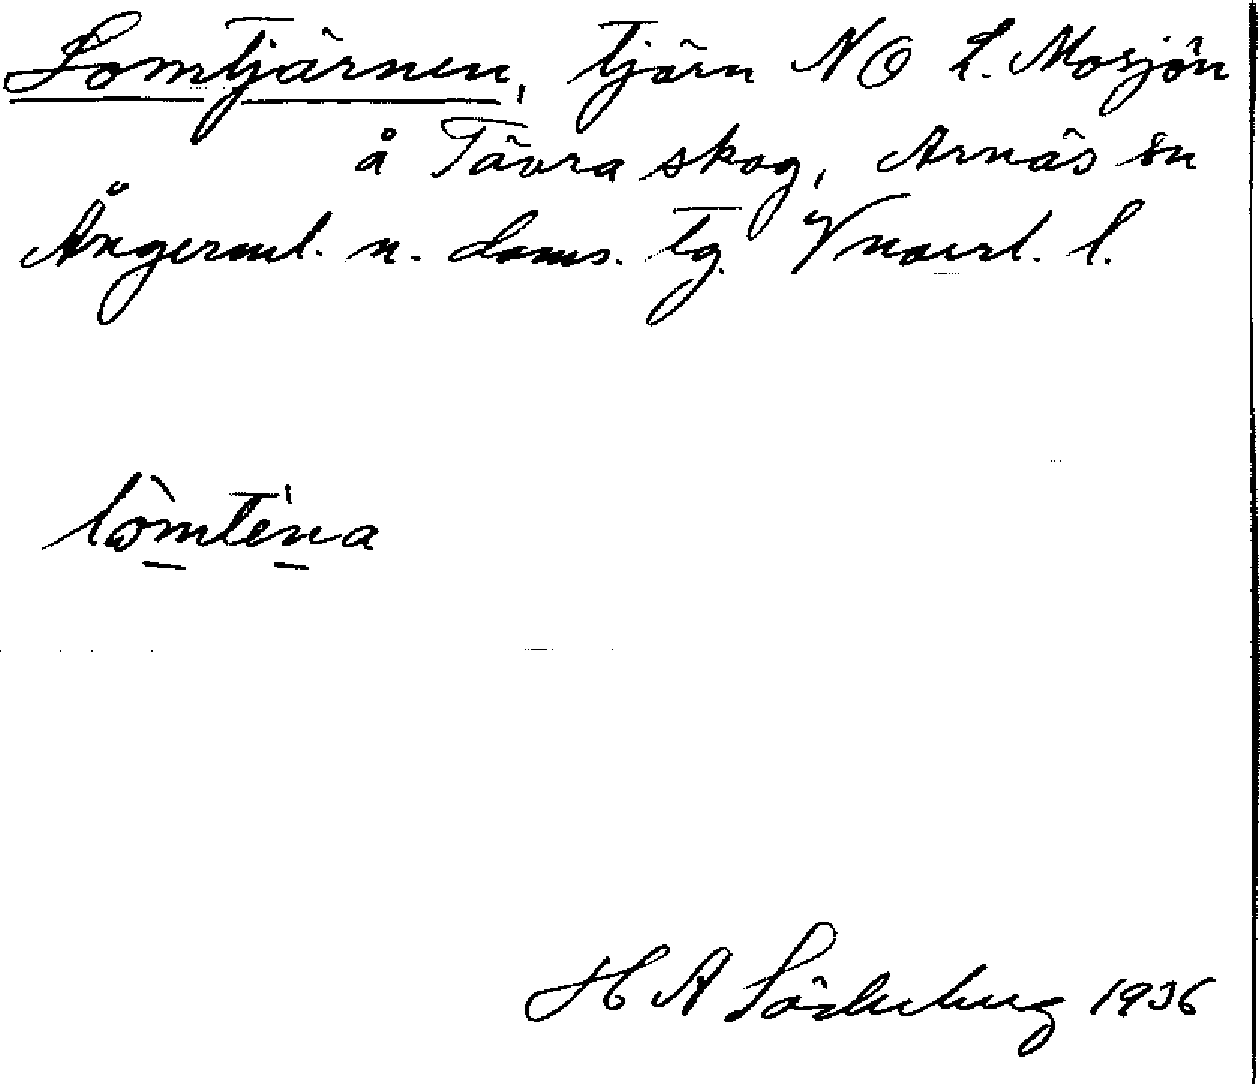 Lomtjärnen, tjärn NO L. Mosjön
å Tävra skog, Arnäs sn
Ångerml. n. doms. tg. Vnorrl. l.
lòmtéṇa
H A Söderberg 1936